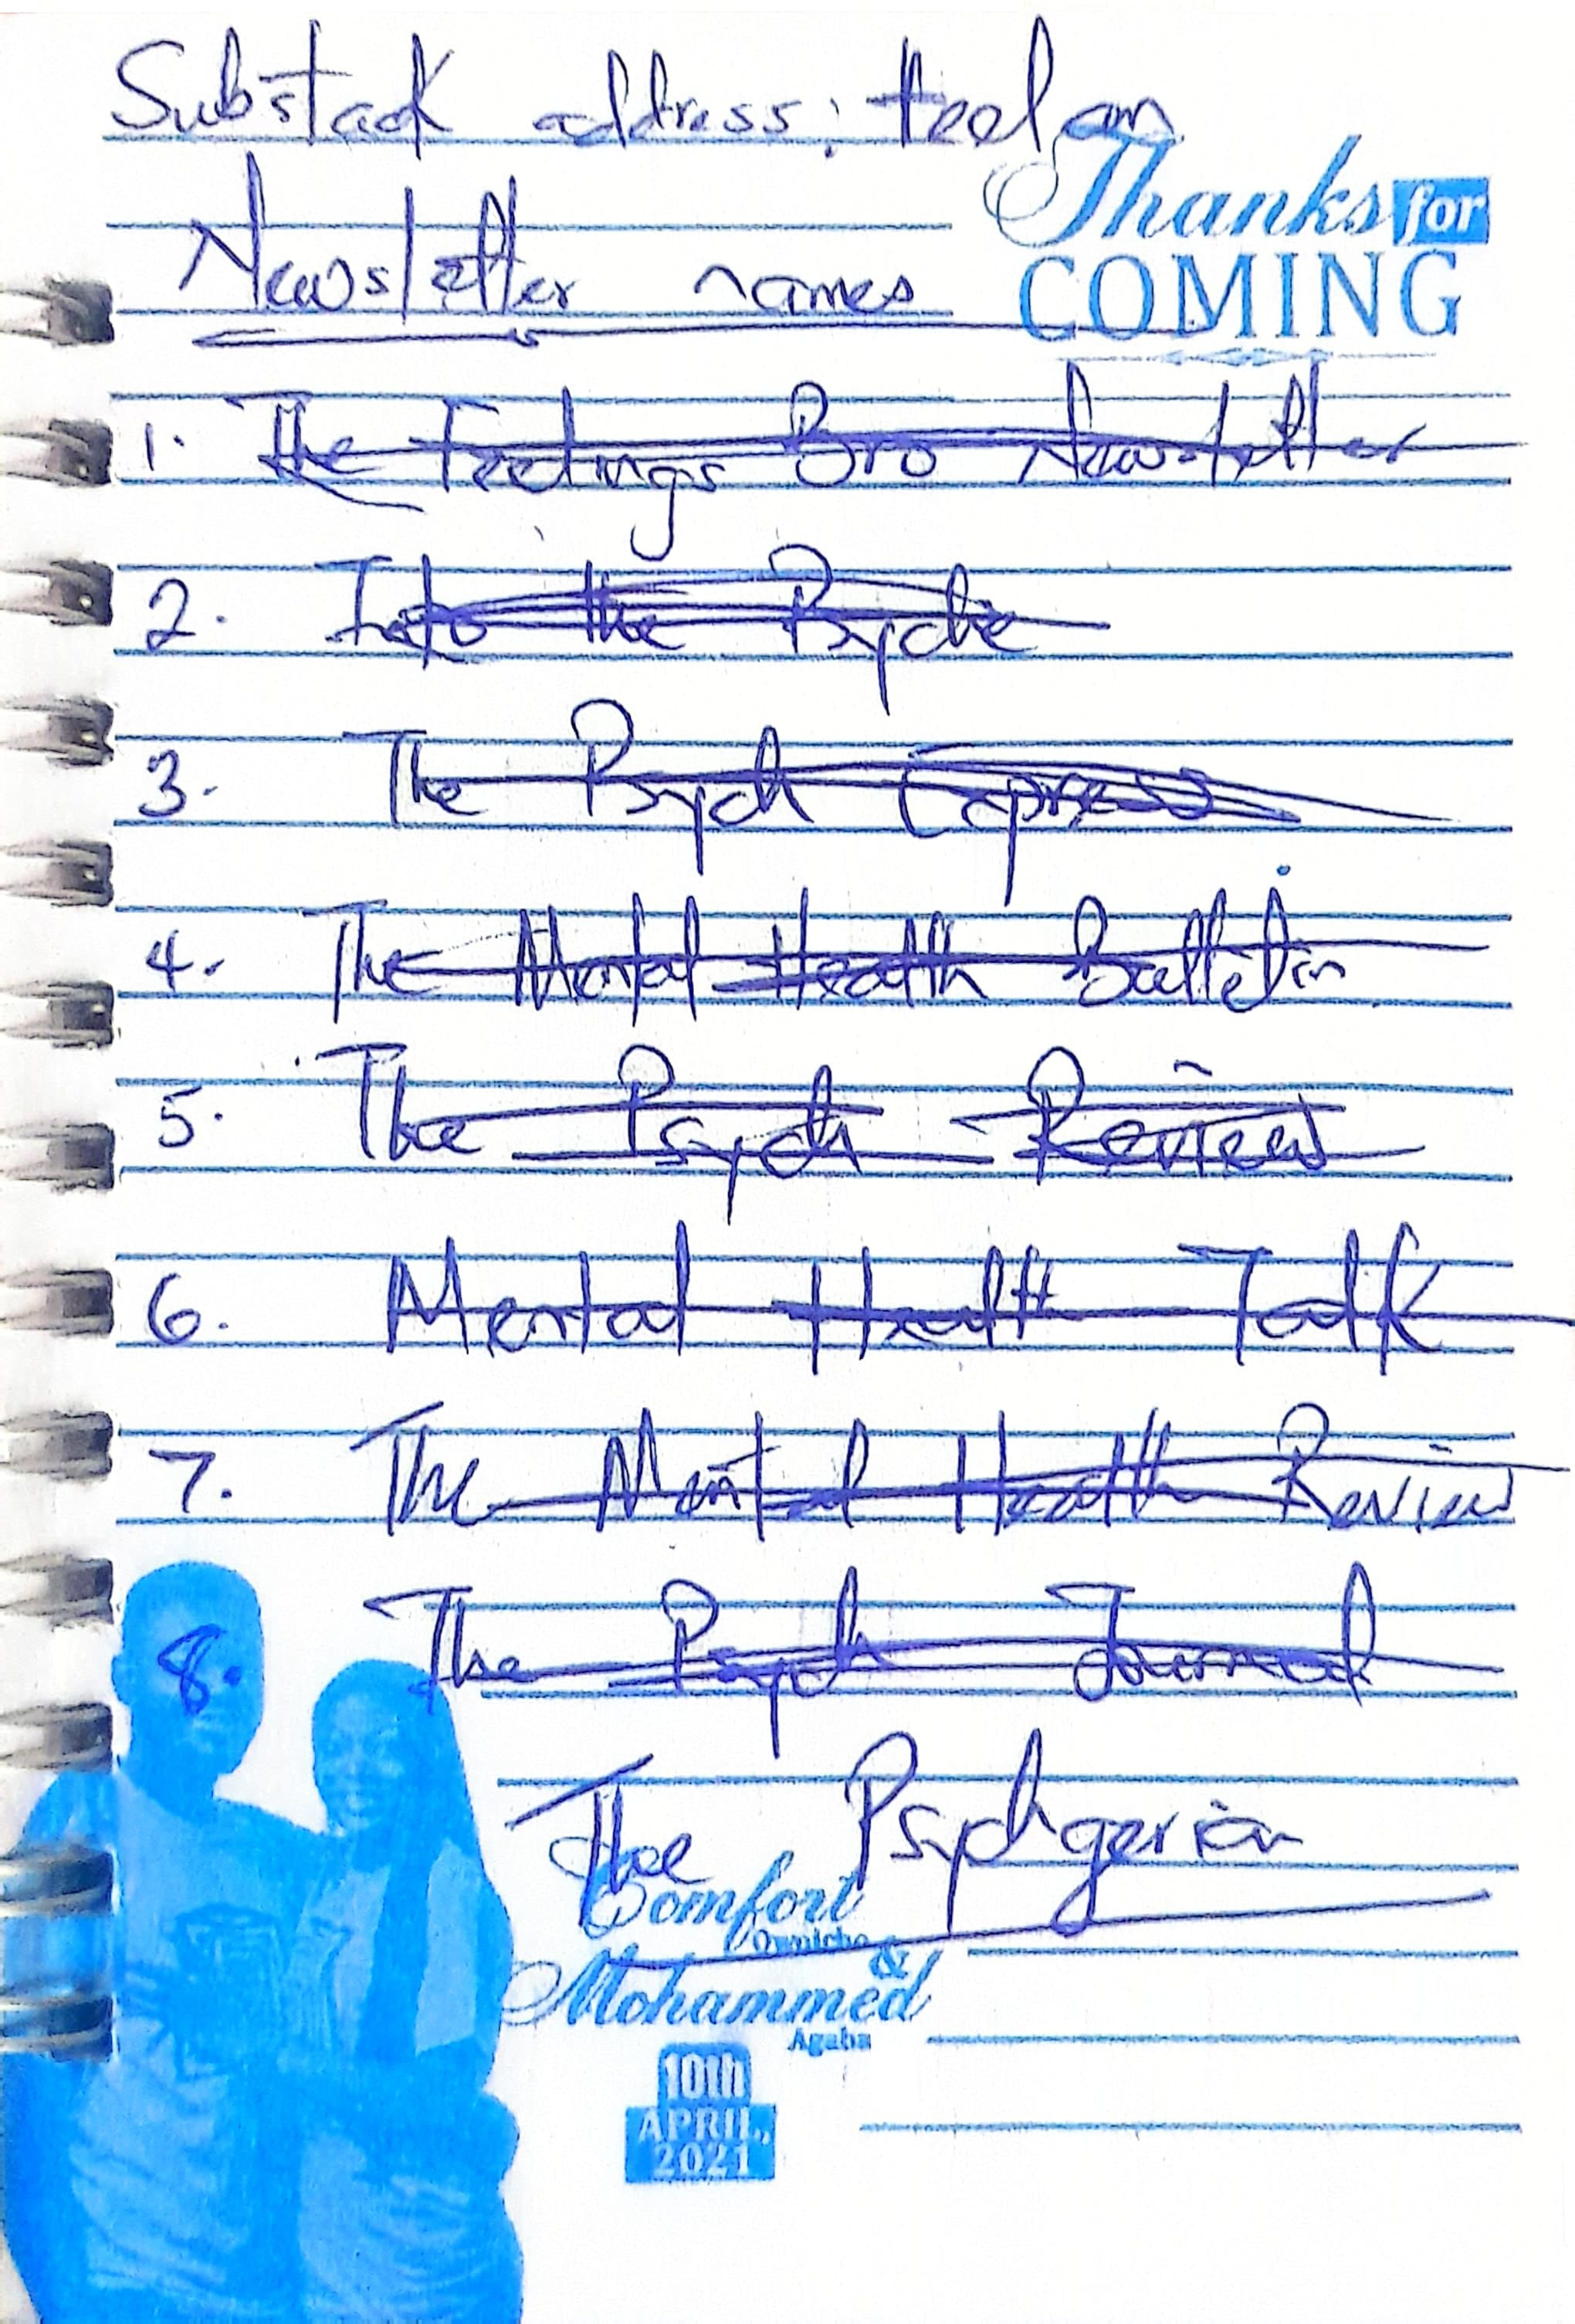 Substack address: teelan
Thanks for
COMING
Newsletter names
1. The Feelings Bro Newsletter
2. Into the Psyche
3. The Psych Express
4. The Mental Health Bulletin
5. The Psych Review
6. Mental Health Talk
7. The Mental Health Review
8. The Psych Journal
The Psychgerian
Comfort
&
Mohammed
Agaba
10th
APRIL,
2021